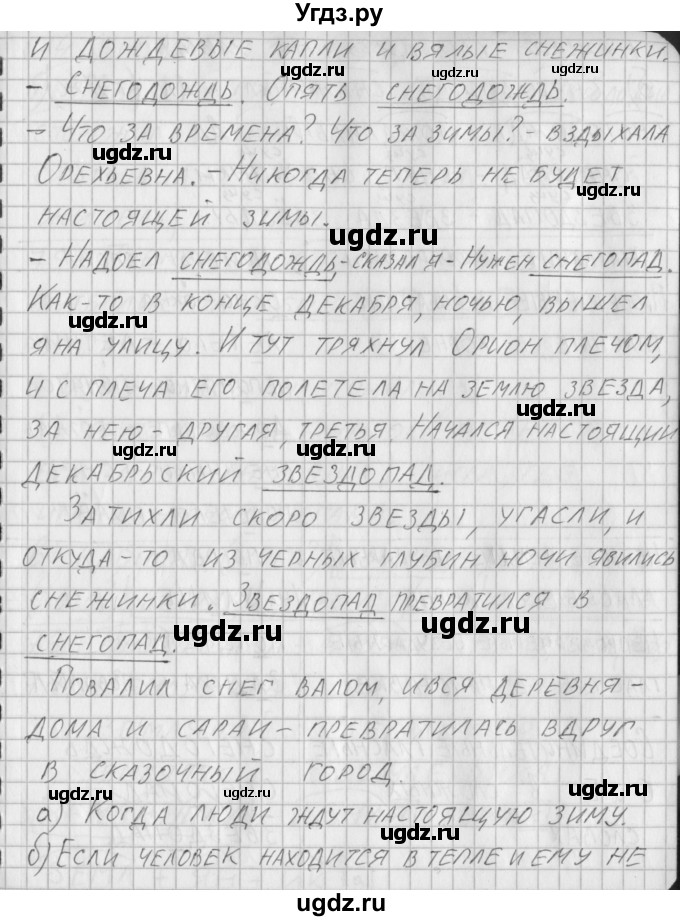 Угдз.ру
И ДОЖДЕВЫЕ КАПЛИ И ВЯЛЫЕ СНЕЖИНКИ.
- СНЕГОДОЖДЬ. ОПЯТЬ СНЕГОДОЖДЬ.
- ЧТО ЗА ВРЕМЕНА? ЧТО ЗА ЗИМЫ? - ВЗДЫХАЛА
ОРЕХЬЕВНА. - НИКОГДА ТЕПЕРЬ НЕ БУДЕТ
НАСТОЯЩЕЙ ЗИМЫ.
- НАДОЕЛ СНЕГОДОЖДЬ, - СКАЗАЛ Я - НУЖЕН СНЕГОПАД.
КАК-ТО В КОНЦЕ ДЕКАБРЯ, НОЧЬЮ, ВЫШЕЛ
Я НА УЛИЦУ. И ТУТ ТРЯХНУЛ ОРИОН ПЛЕЧОМ,
И С ПЛЕЧА ЕГО ПОЛЕТЕЛА НА ЗЕМЛЮ ЗВЕЗДА,
ЗА НЕЮ - ДРУГАЯ, ТРЕТЬЯ НАЧАЛСЯ НАСТОЯЩИЙ
ДЕКАБРЬСКИЙ ЗВЕЗДОПАД.
ЗАТИХЛИ СКОРО ЗВЕЗДЫ, УГАСЛИ, И
ОТКУДА-ТО ИЗ ЧЕРНЫХ ГЛУБИН НОЧИ ЯВИЛИСЬ
СНЕЖИНКИ. ЗВЕЗДОПАД ПРЕВРАТИЛСЯ В
СНЕГОПАД.
ПОВАЛИЛ СНЕГ ВАЛОМ, И ВСЯ ДЕРЕВНЯ -
ДОМА И САРАИ - ПРЕВРАТИЛАСЬ ВДРУГ
В СКАЗОЧНЫЙ ГОРОД.
а) КОГДА ЛЮДИ ЖДУТ НАСТОЯЩУЮ ЗИМУ.
б) ЕСЛИ ЧЕЛОВЕК НАХОДИТСЯ В ТЕПЛЕ И ЕМУ НЕ
ugdz.ru